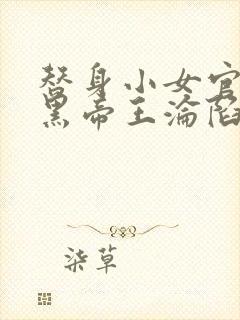 替身小女官
黑帝王淪陷
柒草